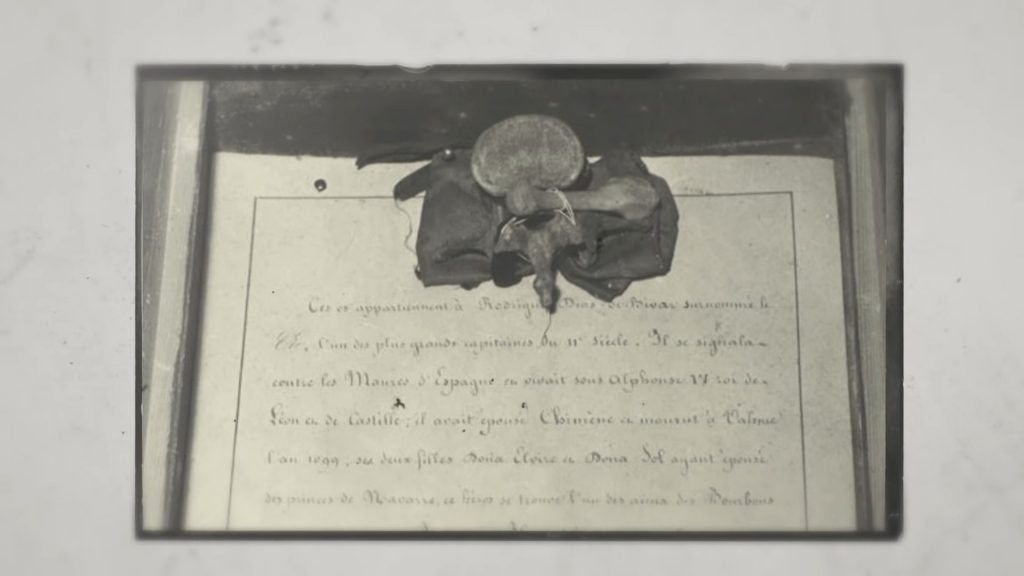 Ces os appartiennent à Rodrigue Dias de Bivar surnommé le
l'un des plus grands capitaines du 11e siècle. Il se signala
contre les Maures d'Espagne et vivait sous Alphonse VI roi de
Léon et de Castille; il avait épousé Chimène et mourut à Valence
l'an 1099; ses deux filles Doña Elvire et Doña Sol ayant épousé
des princes de Navarre, ce héros se trouve l'un des aieux des Bourbons